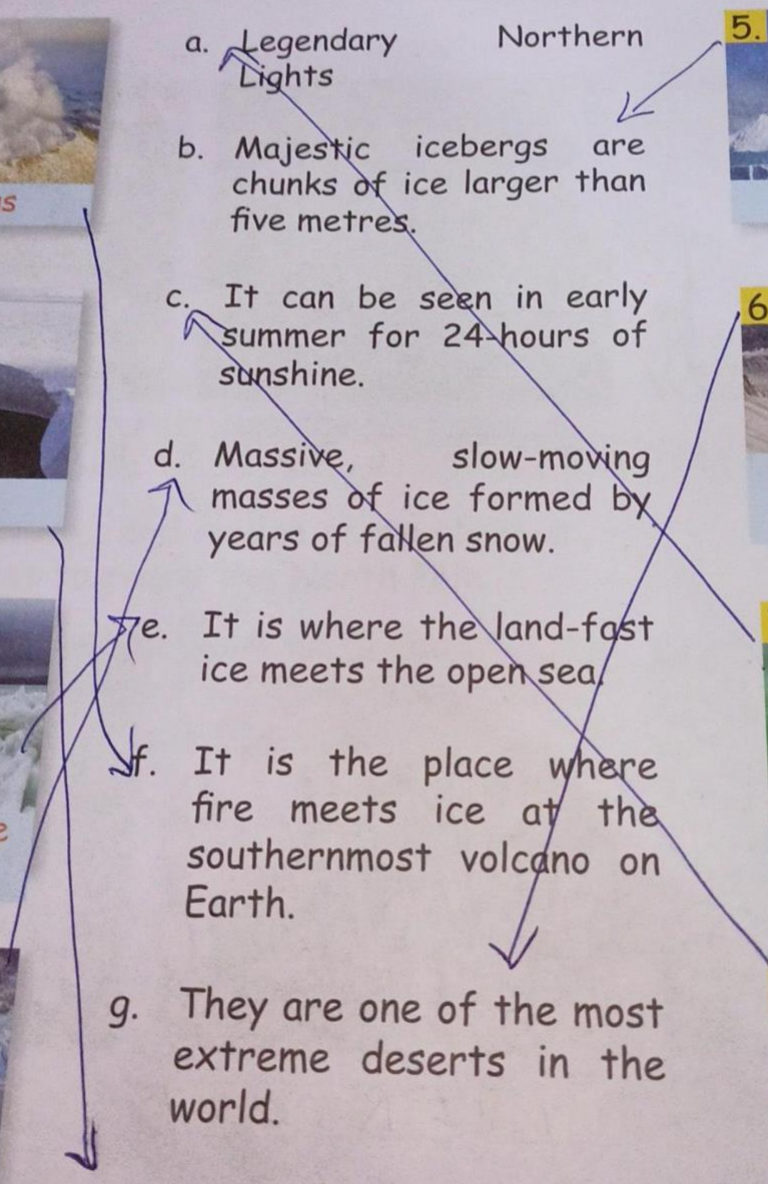 a. Legendary Northern
Lights
5.
b. Majestic icebergs are
chunks of ice larger than
five metres.
s
c. It can be seen in early
summer for 24-hours of
sunshine.
6
d. Massive, slow-moving
masses of ice formed by
years of fallen snow.
e. It is where the land-fast
ice meets the open sea.
f. It is the place where
fire meets ice at the
southernmost volcano on
Earth.
e
g. They are one of the most
extreme deserts in the
world.